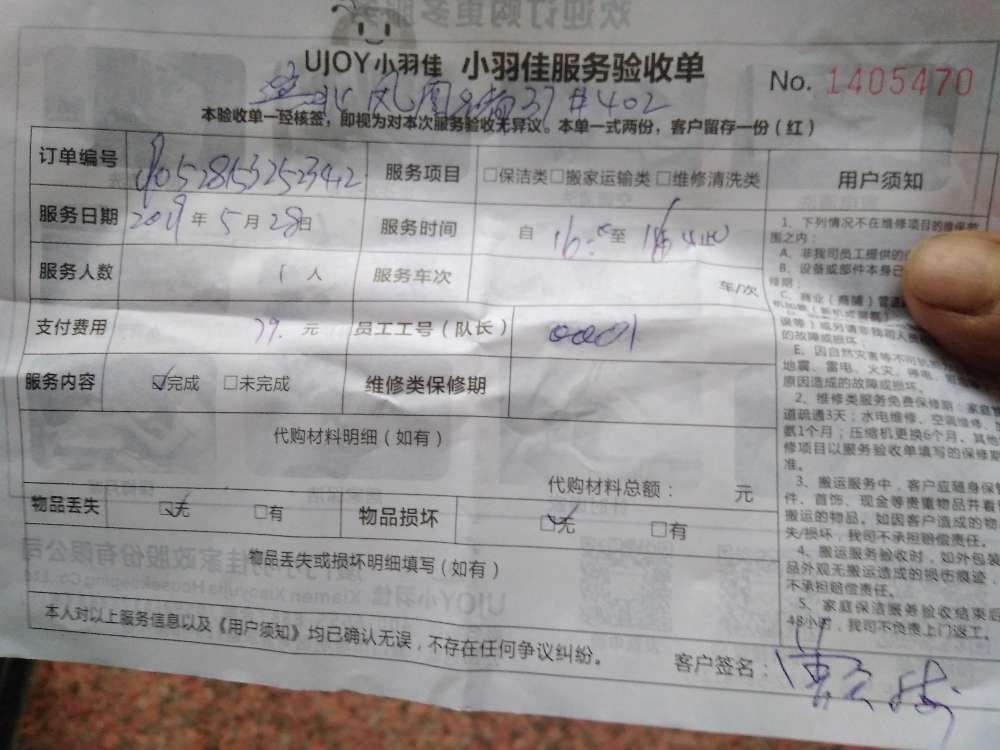 UJOY小羽佳 小羽佳服务验收单
No. 1405470
37#402
本验收单一经核签，即视为对本次服务验收无异议。本单一式两份，客户留存一份（红）
订单编号 0528153252342 服务项目 □保洁类□搬家运输类□维修清洗类 用户须知
服务日期 2019年5月28日 服务时间 自 16: 至 止
服务人数 1人 服务车次 车/次
支付费用 79.元 员工工号（队长） 0001
服务内容 ☑完成 □未完成 维修类保修期
代购材料明细（如有）
代购材料总额： 元
物品丢失 ☑无 □有 物品损坏 ☑无 □有
物品丢失或损坏明细填写（如有）
本人对以上服务信息以及《用户须知》均已确认无误，不存在任何争议纠纷。
客户签名：
1、下列情况不在维修项目的维保范
围之内：
A、非我司员工提供的
B、设备或部件本身已
修期；
C、商业（商铺）管道
误等）或另请非我司人
的故障或损坏；
E、因自然灾害等不可
地震、雷电、火灾、停电、
原因造成的故障或损坏。
2、维修类服务免费保修期：家庭管
道疏通3天；水电维修、空调维修、
氨1个月；压缩机更换6个月，其他
修项目以服务验收单填写的保修期
准。
3、搬运服务中，客户应随身保
件、首饰、现金等贵重物品并看
搬运的物品。如因客户造成的物
失/损坏，我司不承担赔偿责任。
4、搬运服务验收时，如外包装
品外观无搬运造成的损伤痕迹，
不承担赔偿责任。
5、家庭保洁服务验收结束后
48小时，我司不负责上门返工。